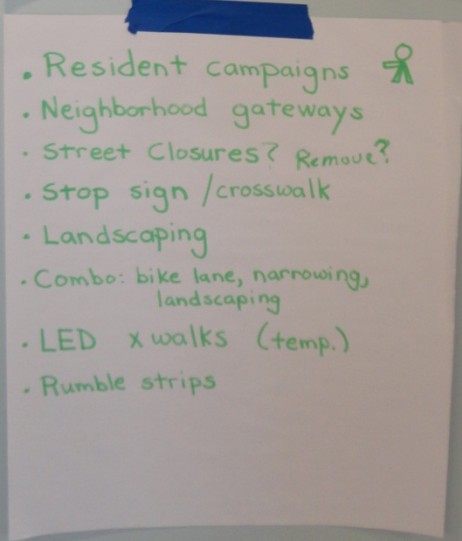 • Resident campaigns
• Neighborhood gateways
• Street Closures? Remove?
• Stop sign / crosswalk
• Landscaping
• Combo: bike lane, narrowing,
landscaping
• LED x walks (temp.)
• Rumble strips